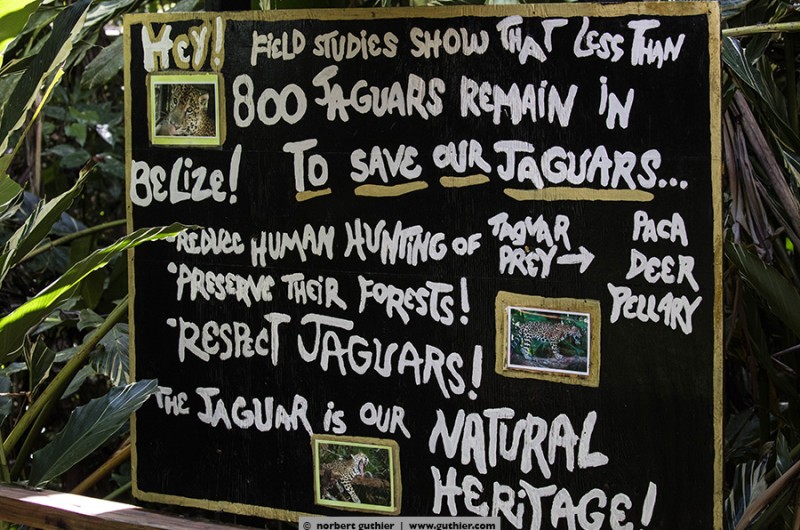 Hey! FIELD STUDIES SHOW THAT LESS THAN
800 JAGUARS REMAIN IN
BELIZE! TO SAVE OUR JAGUARS...
*REDUCE HUMAN HUNTING OF JAGUAR PREY → PACA DEER PELLARY
*PRESERVE THEIR FORESTS!
*RESPECT JAGUARS!
THE JAGUAR iS OUR NATURAL
HERITAGE!
© norbert guthier | www.guthier.com